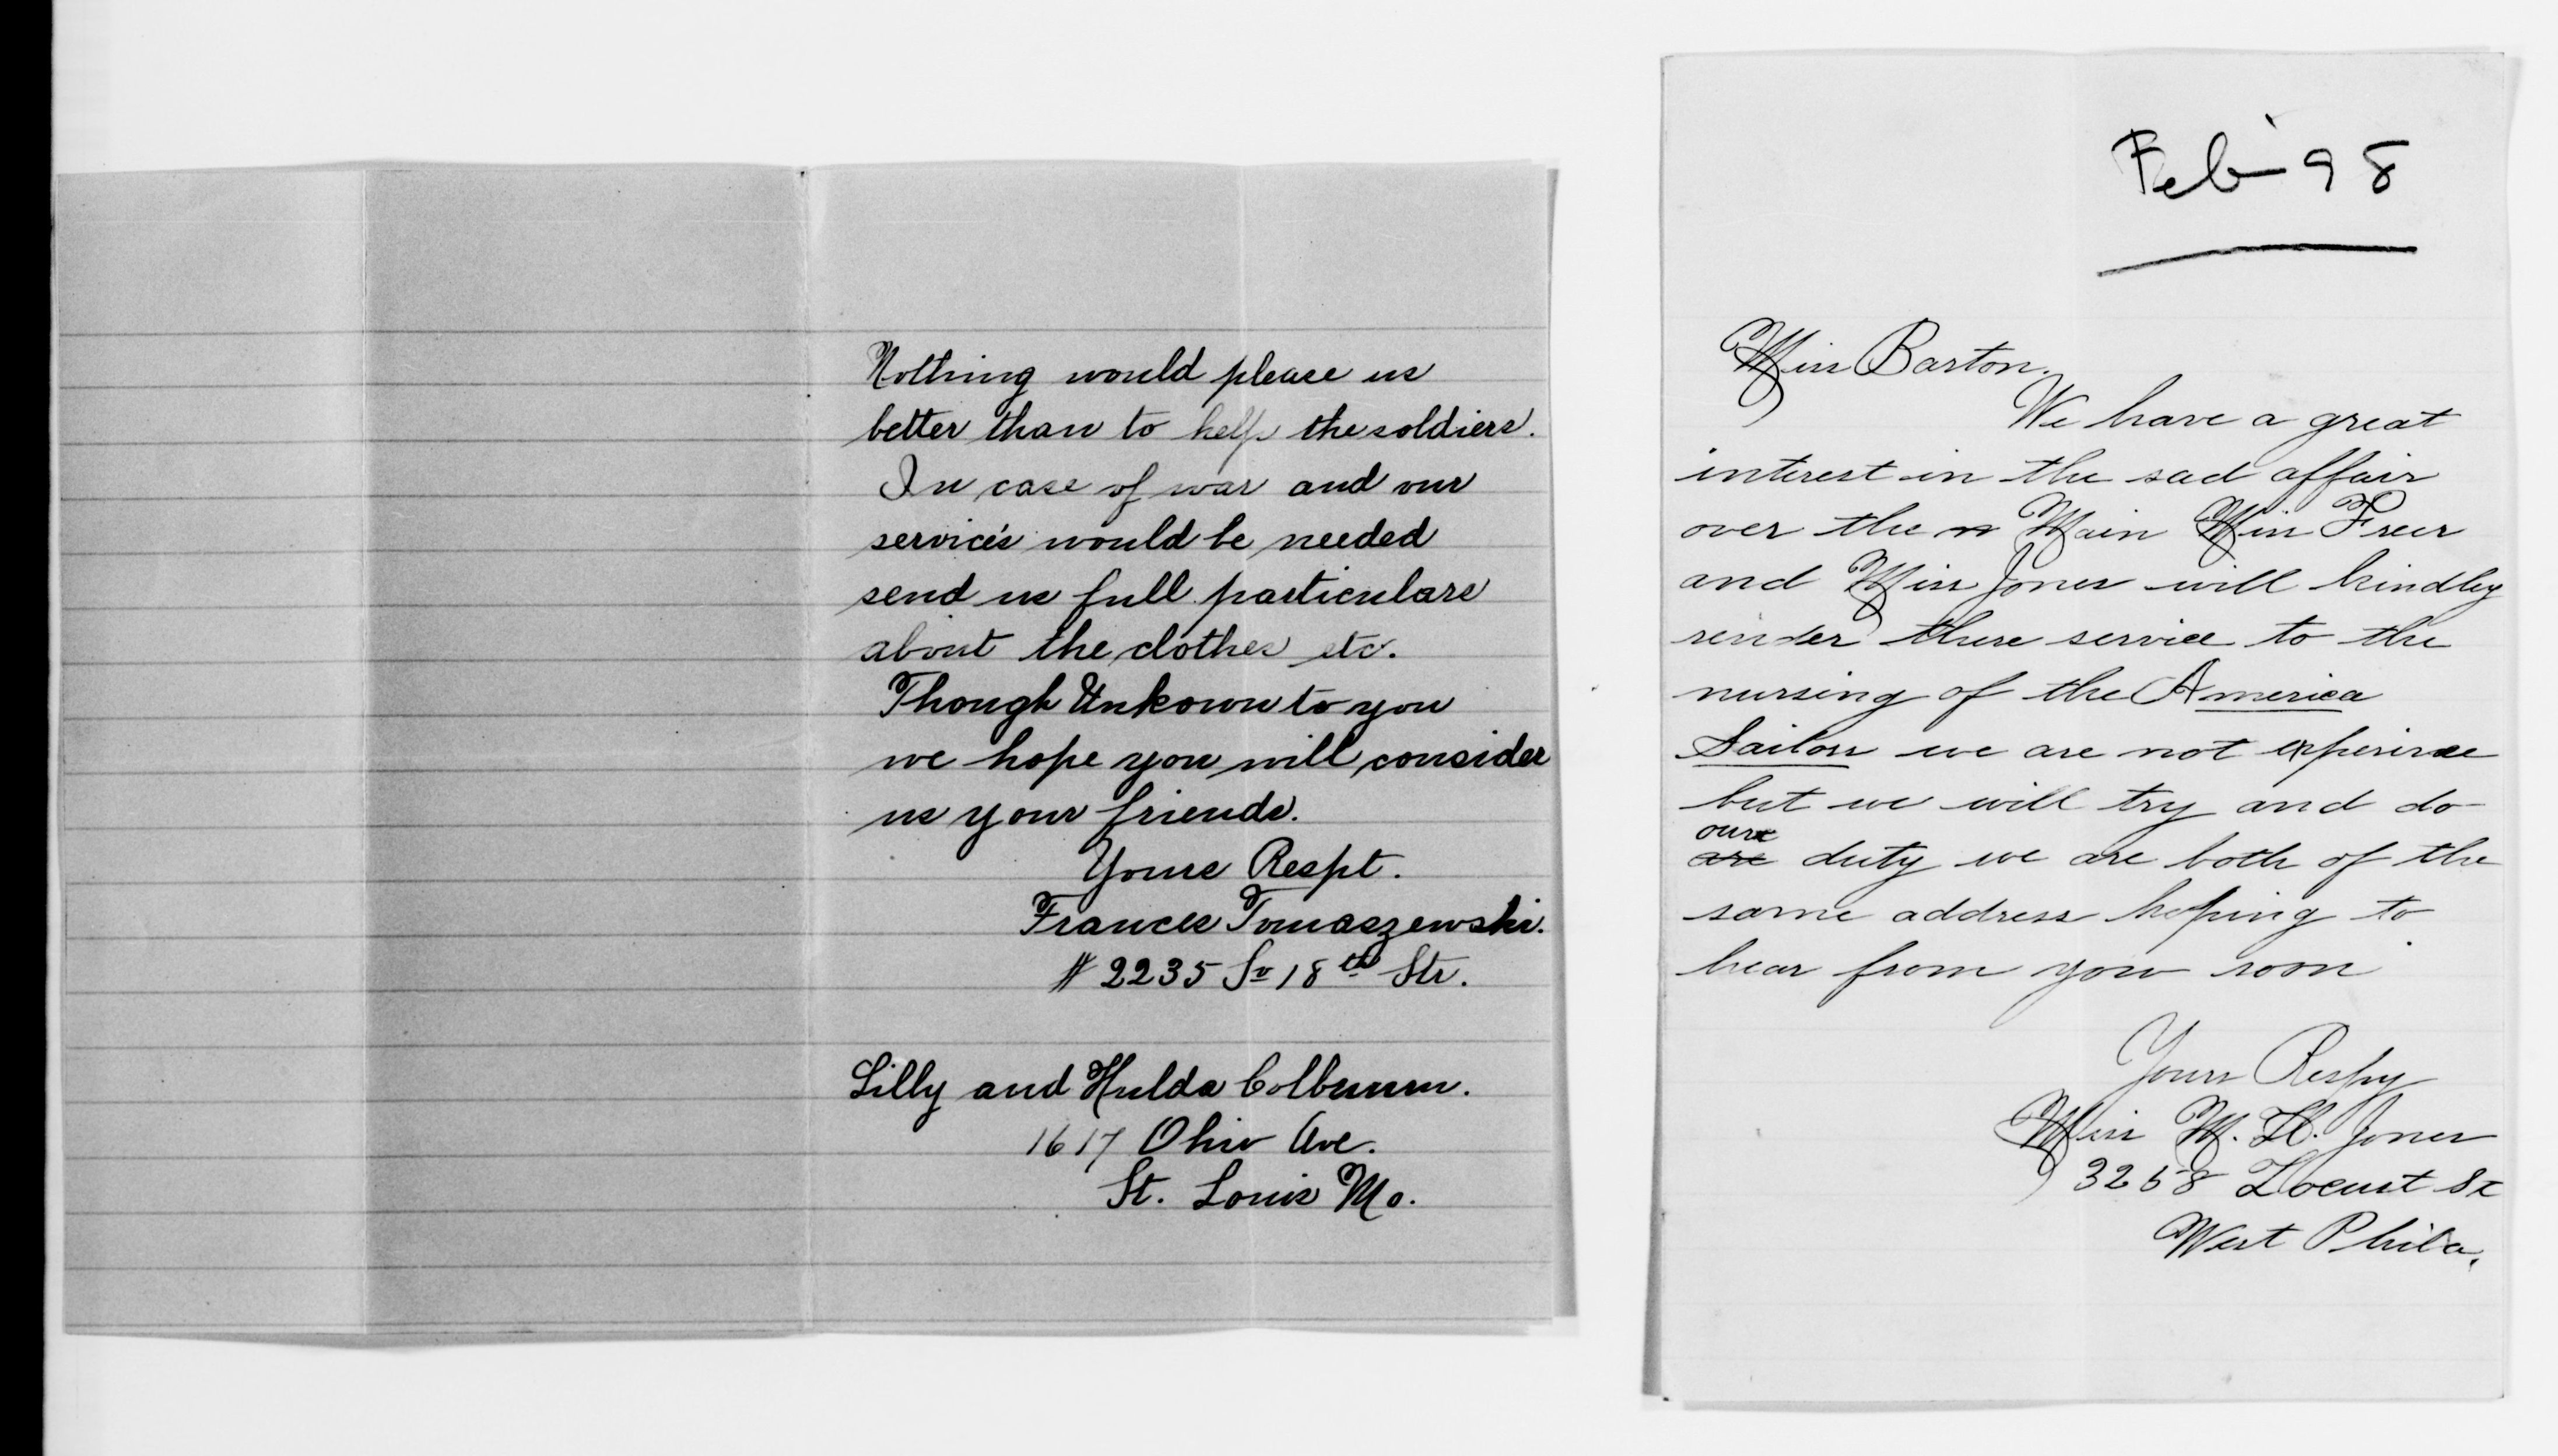 Nothing would please us
better than to help the soldiers.
In case of war and our
services would be needed
send us full particulars
about the clothes etc.
Though Unkown to you
we hope you will consider
us your friends.
Yours Respt.
Frances Tomaszewski.
# 2235 So 18th Str.
Lilly and Hulda Colbrunn.
1617 Ohio Ave.
St. Louis Mo.
Feb 98
Miss Barton.
We have a great
interest in the sad affair
over the n Main Miss Freer
and Miss Jones will kindley
render there service to the
nursing of the America
Sailors we are not experince
but we will try and do
our
are duty we are both of the
same address hoping to
hear from you soon
Yours Respy
Miss M. H. Jones
3258 Locust St
West Phila.